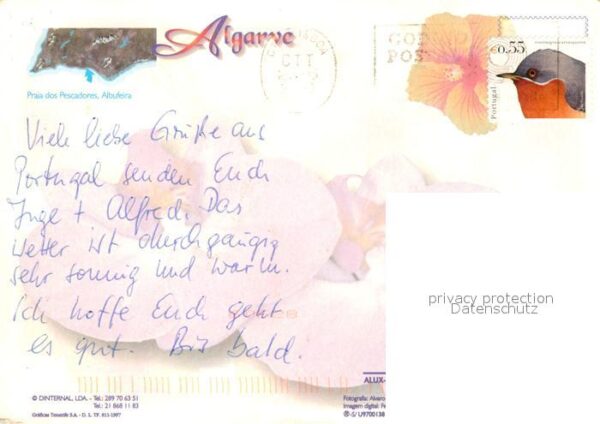 Algarve
Praia dos Pescadores, Albufeira
CTT
€0,55
Portugal
Viele liebe Grüße aus
Portugal senden Euch
Inge + Alfred. Das
Wetter ist durchgängig
sehr sonnig und warm.
Ich hoffe Euch geht
es gut. Bis bald.
privacy protection
Datenschutz
© DINTERNAL, LDA. - Tel.: 289 70 63 51
Tel.: 21 868 11 83
Gráficas Tenerife S.A. - D. L. TF. 811-1997
ALUX-
Fotografia: Alvaro
Imagem digital: Fe